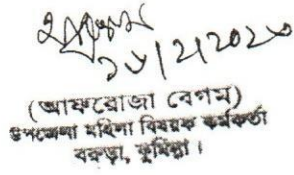 ১৮/২/২০২০
(আফরোজা বেগম)
উপজেলা মহিলা বিষয়ক কর্মকর্তা
বরুড়া, কুমিল্লা।